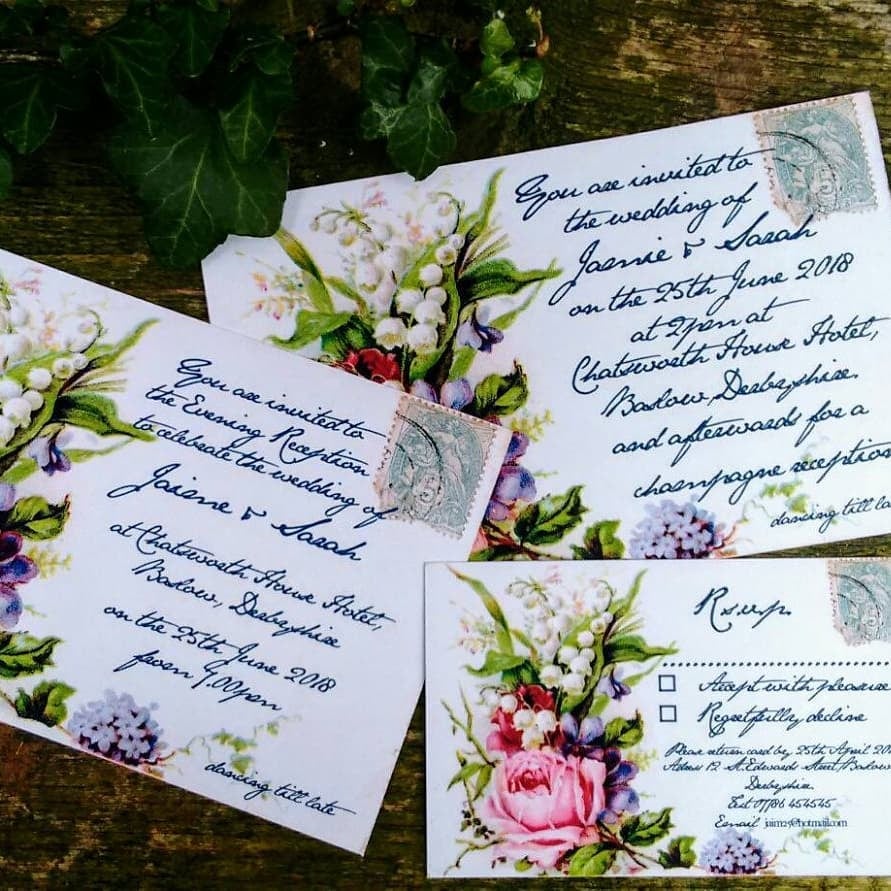 You are invited to
the wedding of
Jamie & Sarah
on the 25th June 2018
at 2pm at
Chatsworth House Hotel,
Baslow, Derbyshire.
and afterwards for a
champagne reception
dancing till la
You are invited to
the Evening Reception
to celebrate the wedding of
Jaime & Sarah
at Chatsworth House Hotel,
Baslow, Derbyshire
on the 25th June 2018
from 7.00pm
dancing till late
R.s.v.p.
Accept with pleasure
Regretfully decline
Please return card by 25th April 20
Adress 12 St. Edwards Street, Baslow
Derbyshire
Text 07786 454545
Email jaim25@hotmail.com